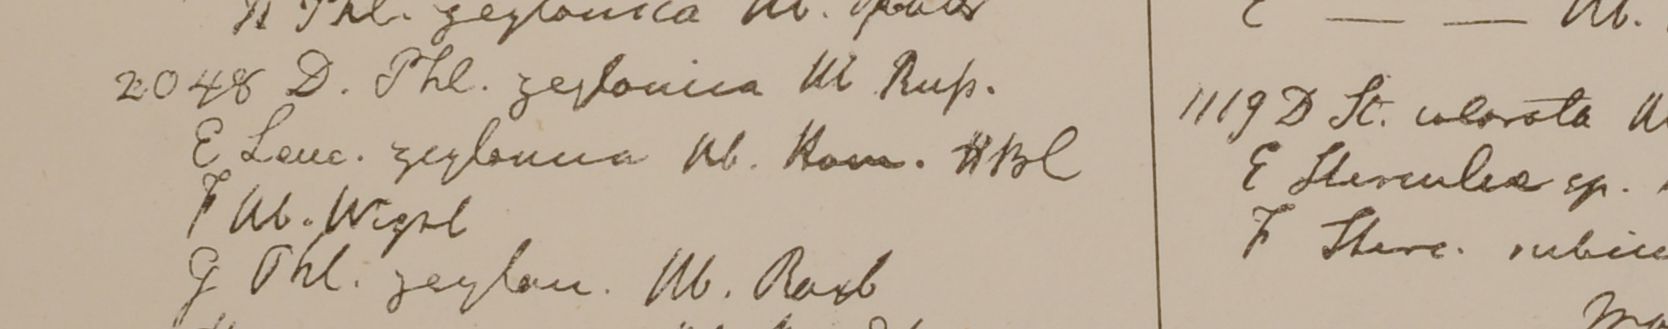 Phl. zeylonica Hb.
2048 D. Phl. zeylonica Hb Rup.
E Leuc. zeylonica Hb. Ham. HBl
F Hb. Wight
G Phl. zeylon. Hb. Roxb
E — — Hb.
1119 D St. colorata
E Sterculia sp.
F Sterc.